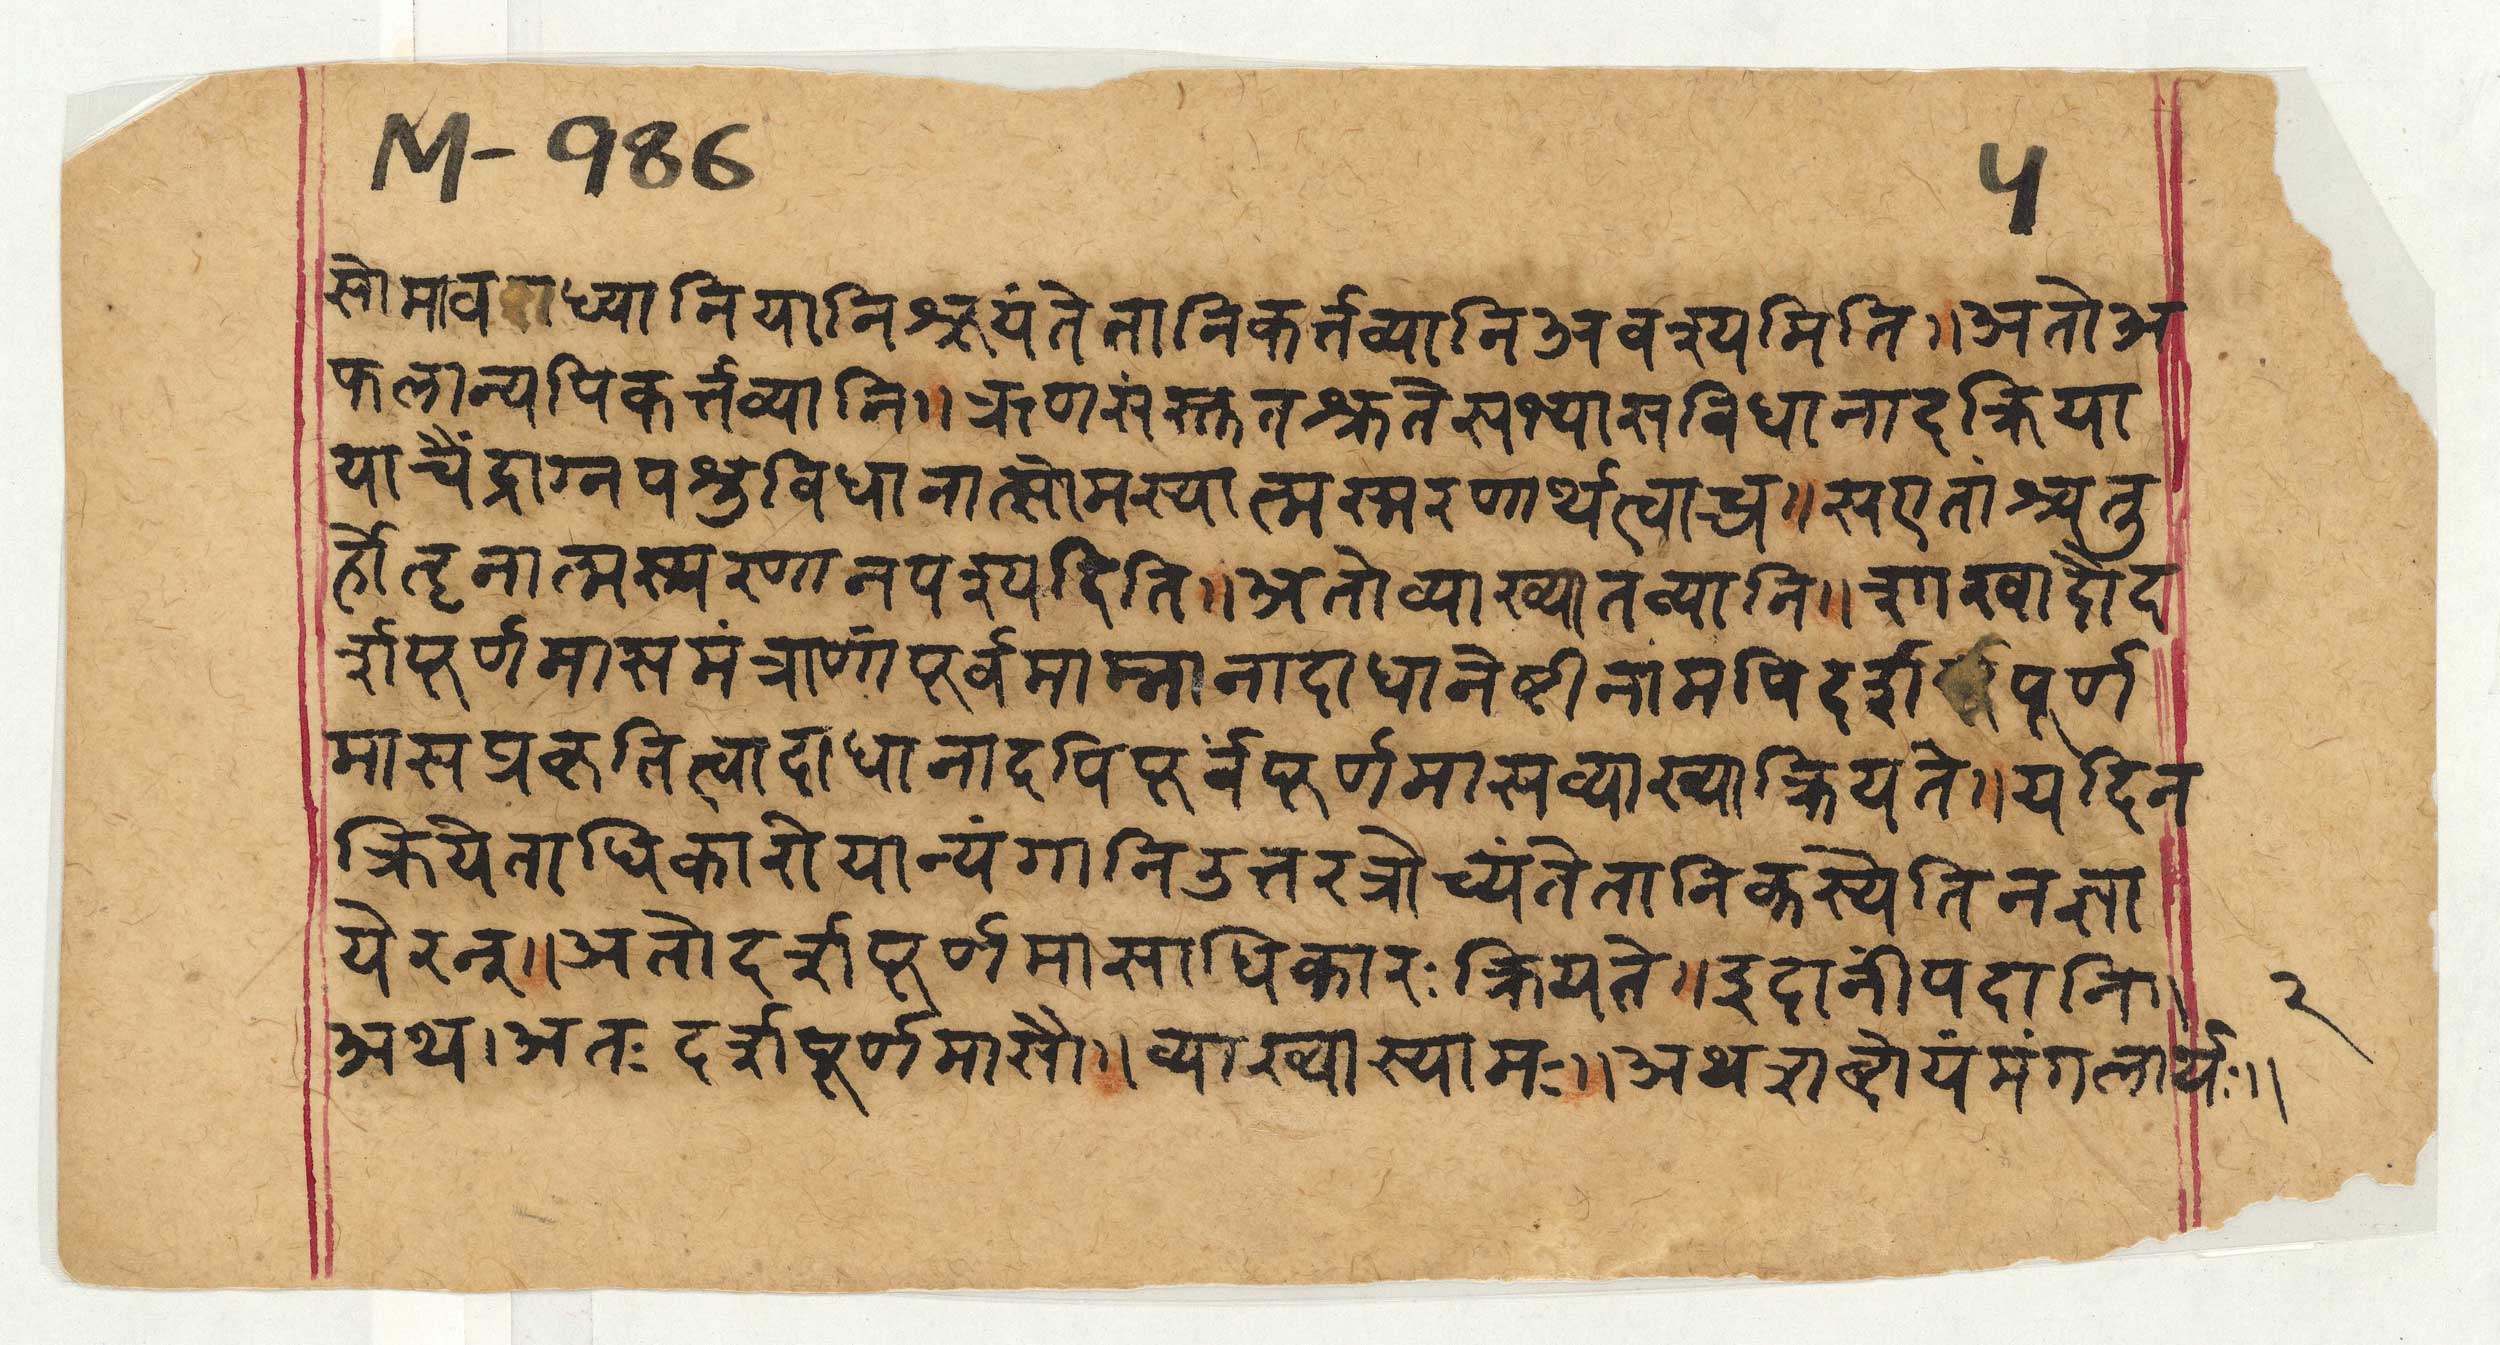 M-986
५
सोमावराध्यानियानिश्रूयंतेतानिकर्त्तव्यानिअवश्यमिति॥अतोअ
फलान्यपिकर्त्तव्यानि॥ऋणसंस्ततश्रुतेसभ्यासविधानादक्रिया
याचैंद्राग्नपश्रुविधानात्सोमस्यात्मस्मरणार्थत्वाच्च॥सएतांश्चतु
र्होतॄनात्मस्मरणानपश्यदिति॥अतोव्याख्यातव्यानि॥शाखादौद
र्शपूर्णमासमंत्राणांपूर्वमाम्नानादाधानेष्टीनांमपिदर्शपूर्ण
मासप्रकृतित्वादाधानादपिपूर्वंपूर्णमासव्याख्याक्रियते॥यदिन
क्रियेताधिकारोयान्यंगानिउत्तरत्रोच्यंतेतानिकस्येतिनज्ञा
येरन्॥अतोदर्शपूर्णमासाधिकारःक्रियते॥इदानींपदानि॥
अथ।अतःदर्शपूर्णमासौ॥व्याख्यास्यामः॥अथशब्दोयंमंगलार्थः॥
२